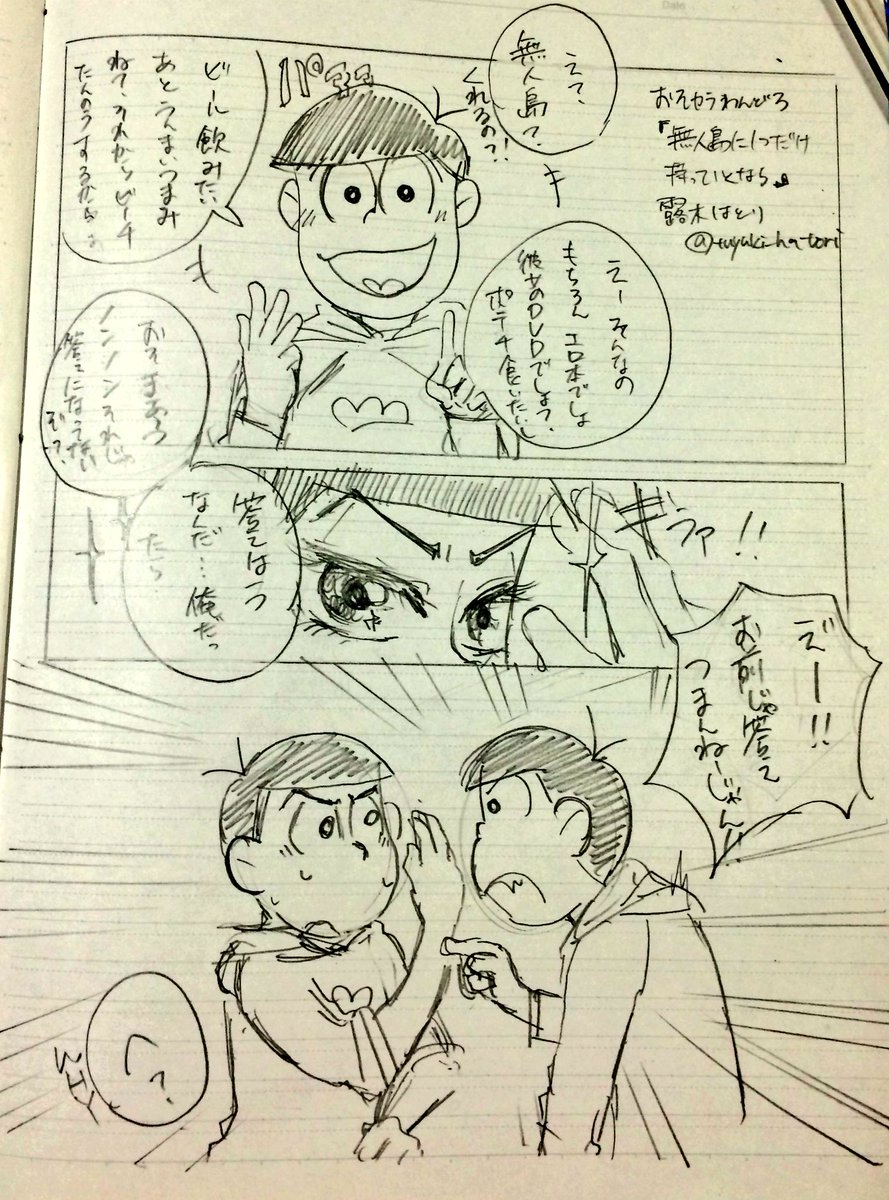 おそカラわんどろ
「無人島に1つだけ
持っていくとなら」
露木はとり
@tuyuki_hatori
えっ、
無人島?
くれるの?!
パァァ
えーそんなの
もちろん エロ本でしょ
彼女のDVDでしょ?、
ポテチ食いたいし
ビール飲みたい
あとうんまいつまみ
ね?、それからビーチ
たんのうするから
おそまぁつ
ノンノンそれじゃ
答えになってない
ぞ?
ギラァ!!
答えはう
なんだ…俺だっ
たら
ズー!!
お前じゃ答え
つまんねーじゃん!!
へ?